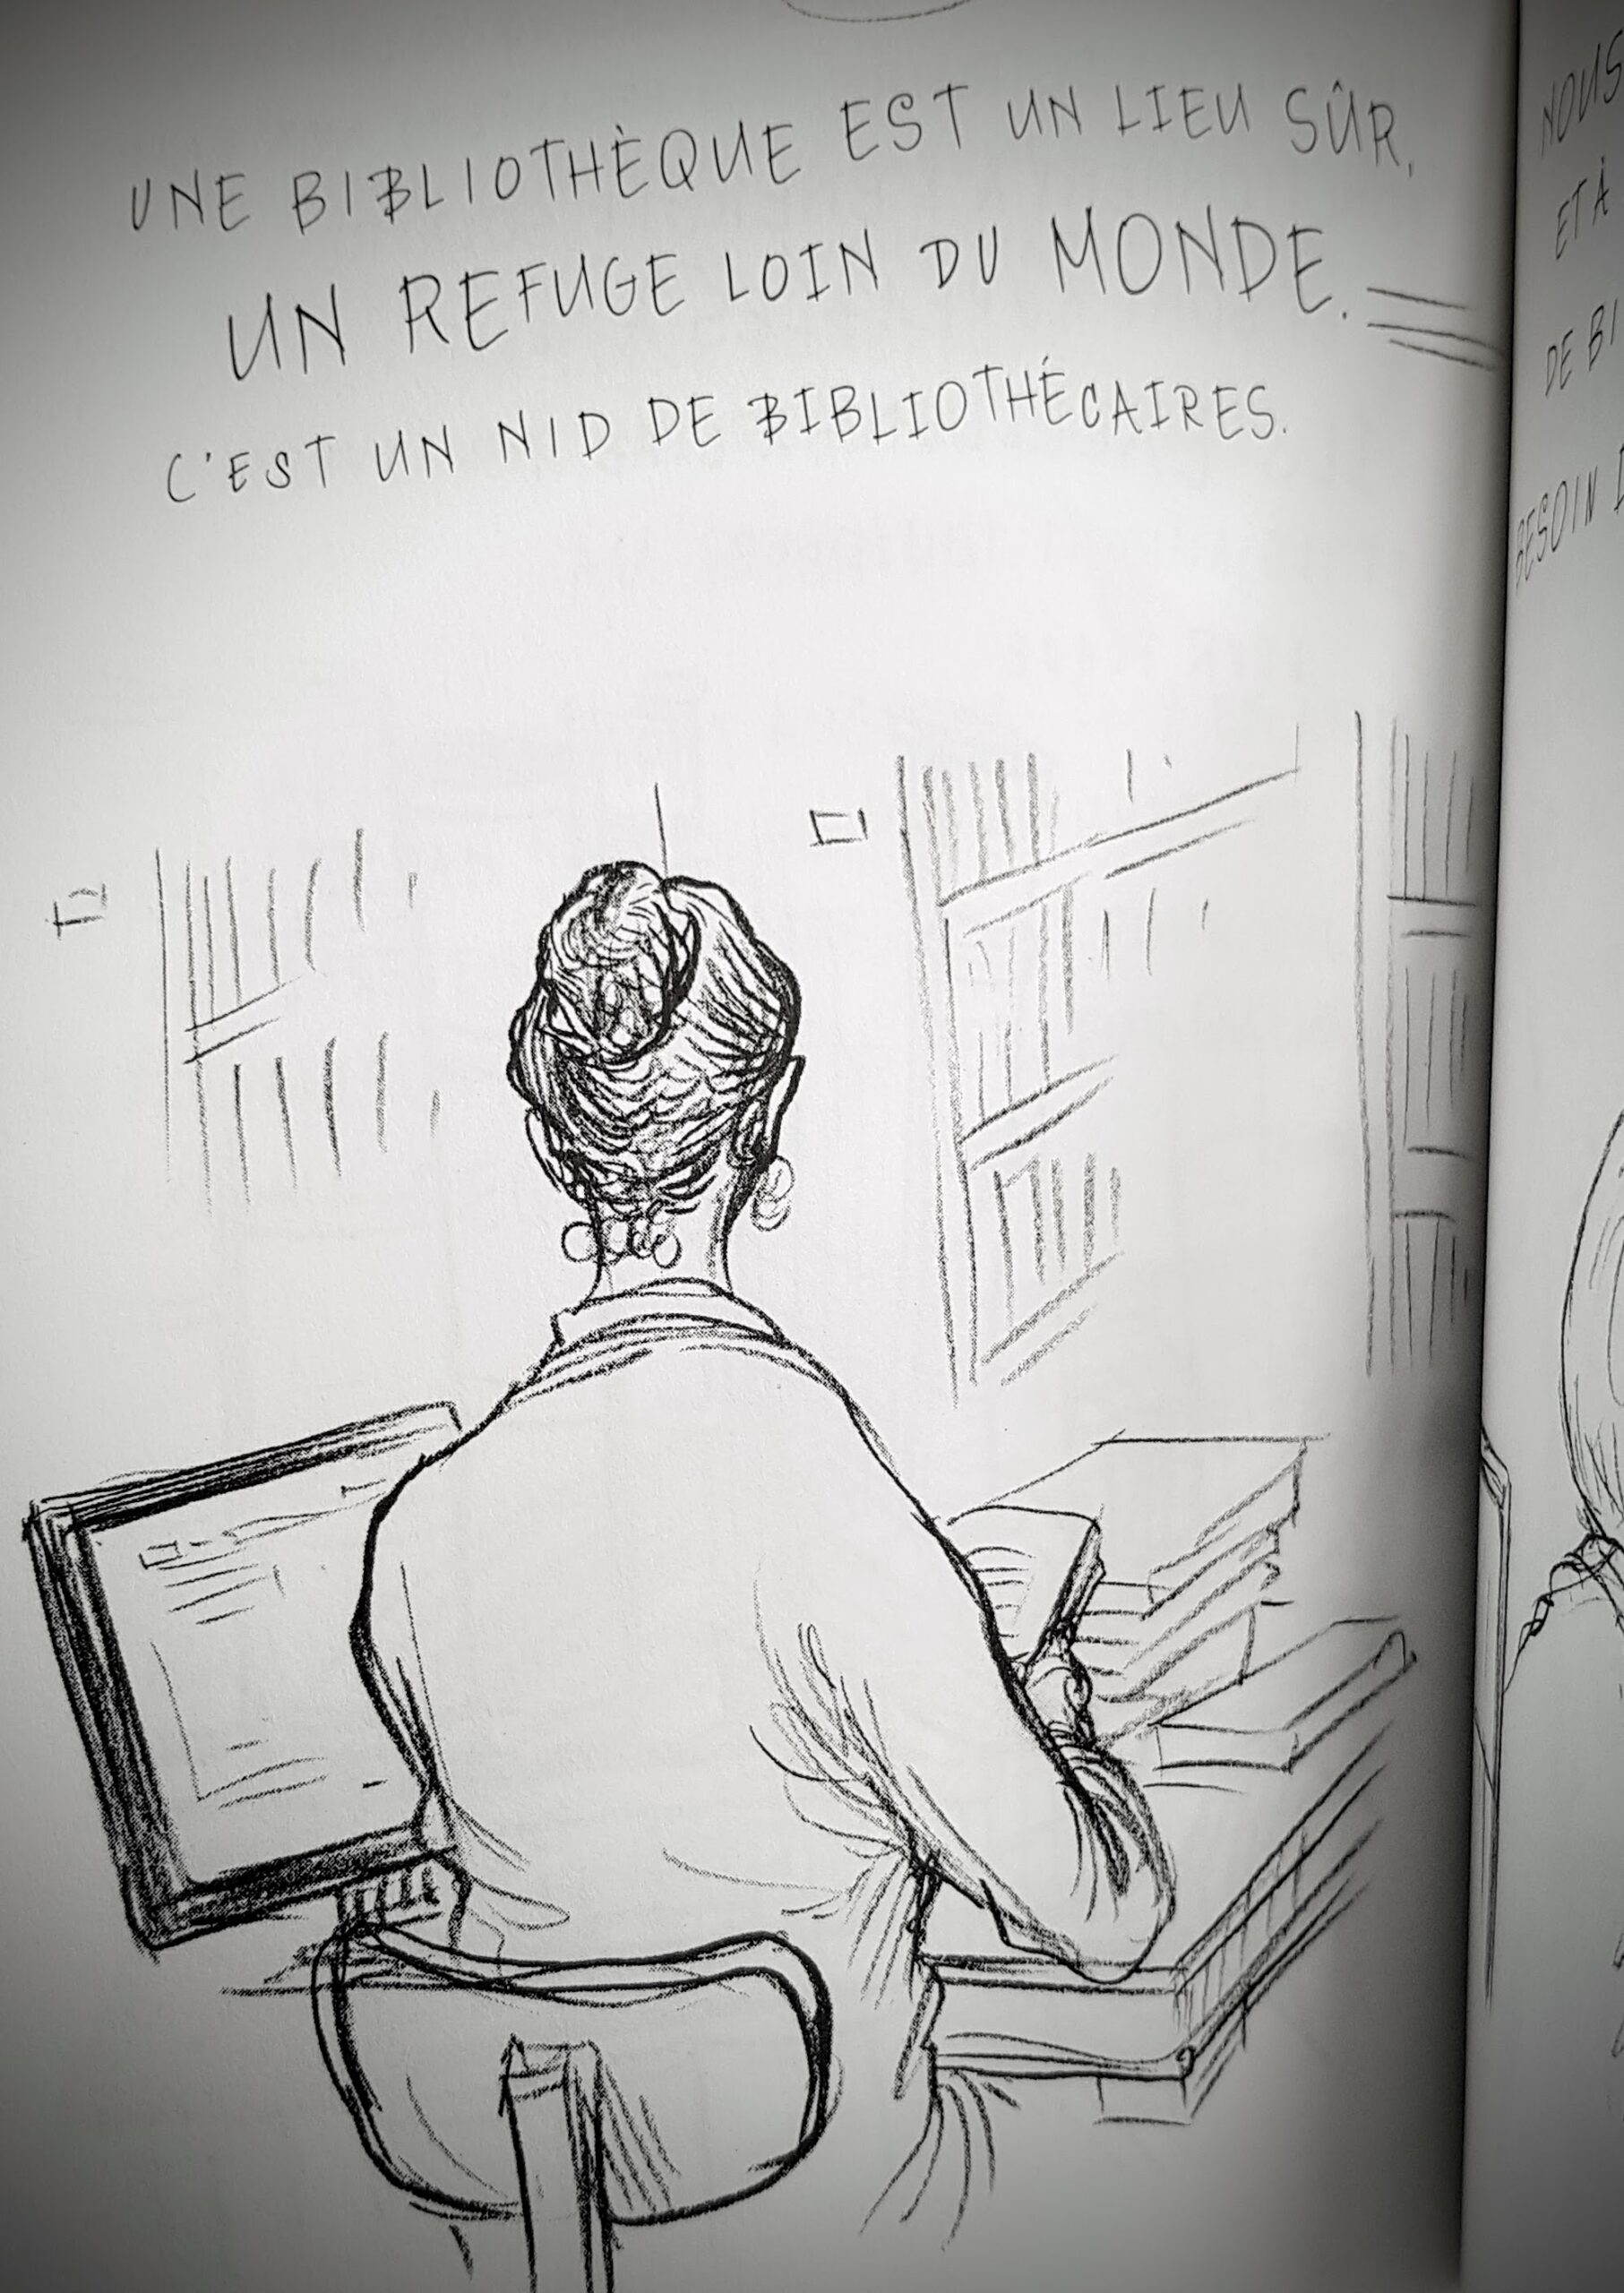 UNE BIBLIOTHÈQUE EST UN LIEU SÛR,
UN REFUGE LOIN DU MONDE.
C'EST UN NID DE BIBLIOTHÉCAIRES.
NOUS
ET À
DE BI
BESOIN